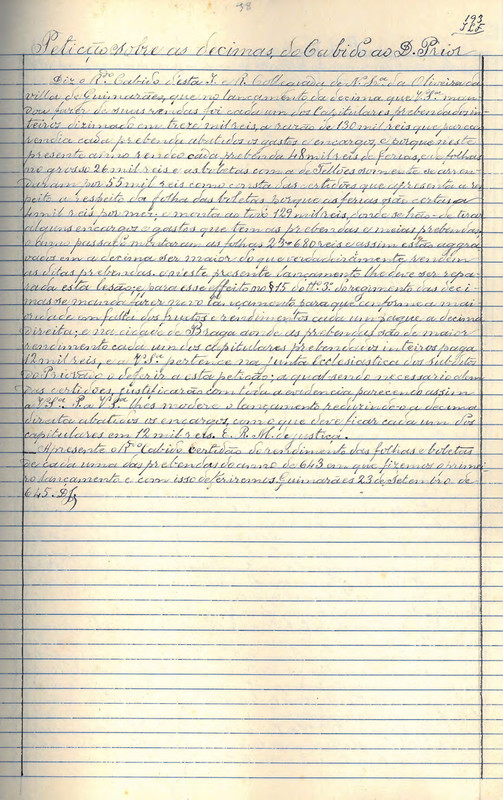 38
193
Petição sobre as decimas, do Cabido ao D. Prior
Diz o Rdo Cabido d'esta I. e R. Collegiada de N. Sra da Oliveira da
villa de Guimarães, que no lançamento da decima que V. Sa man
dou fazer de suas rendas foi cada um dos Capitulares prebendados in
teiros dizimado em treze mil reis, a razão de 130 mil reis que parece
rendia cada prebenda abatidos os gastos e encargos, e porque neste
presente anno rendeo cada prebenda 48 mil reis de ferias, e de folhas
no grosso 26 mil reis e as boletas com a de Felões somente se arren
daram por 55 mil reis como consta das certidões que apresenta a res
peito a respeito da folha das boletas porque as ferias são certas a
4 mil reis por mez; e monta ao todo 129 mil reis, donde se hão de tirar
alguns encargos e gastos que tem as prebendas e meias prebendas,
e anno passado montaram as folhas 23:680 reis e assim estão aggra
vados em a decima ser maior do que verdadeiramente rendiam
as ditas prebendas, e n'este presente lançamento lhe deve ser repa
rada esta lesão; e para esse effeito no § 15 do tt. 3 do regimento das deci
mas se manda fazer novo lançamento para que conforme a mai
oridade em falha dos fructos e rendimentos cada um pague a decima
direita; e na cidade de Braga donde as prebendas são de maior
rendimento cada um dos capitulares prebendados inteiros paga
12 mil reis, e a V. Sa pertence na junta ecclesiastica dos subditos
do Priorado o deferir a esta petição; a qual sendo necessario alem
das certidões, justificarão com toda a evidencia parecendo assim
a V. Sa. P. a V. Sa lhes modere o lançamento reduzindo-o a decima
direita abatidos os encargos, com o que deve ficar cada um dos
capitulares em 12 mil reis. E. R. M. e justiça.
Apresente o Rdo Cabido Certidão do rendimento das folhas e boletas
de cada uma das prebendas do anno de 643 em que fizemos o primei
ro lançamento e com isso deferiremos. Guimarães 23 de Setembro de
645.